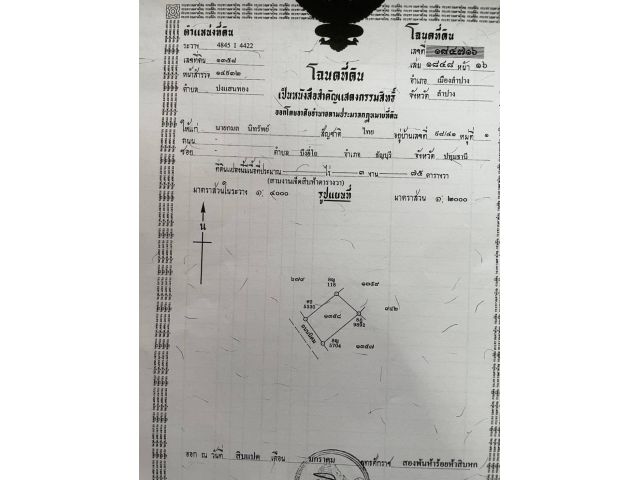 ตำแหน่งที่ดิน
ระวาง 4845 I 4422
เลขที่ดิน ๑๓๕๘
หน้าสำรวจ
ตำบล ปงแสนทอง
โฉนดที่ดิน
เลขที่
เล่ม ๑๘๔๘ หน้า ๑๖
อำเภอ เมืองลำปาง
จังหวัด ลำปาง
โฉนดที่ดิน
เป็นหนังสือสำคัญแสดงกรรมสิทธิ์
ออกโดยอาศัยอำนาจตามประมวลกฎหมายที่ดิน
ให้แก่ นายกมล นิทรัพย์ สัญชาติ ไทย อยู่บ้านเลขที่ ๙๘/๔๑ หมู่ที่ ๑
ถนน -
ซอย - ตำบล บึงยี่โถ อำเภอ ธัญบุรี จังหวัด ปทุมธานี
ที่ดินแปลงนี้มีเนื้อที่ประมาณ ไร่ ๓ งาน ๗๕ ตารางวา
(สามงานเจ็ดสิบห้าตารางวา)
มาตราส่วนในระวาง ๑: ๔๐๐๐ รูปแผนที่ มาตราส่วน ๑: ๒๐๐๐
น
๖๗๙
118
๑๓๕๙
5330
๑๓๕๘
9892
๙๔๒
5704
๑๓๕๗
ออก ณ วันที่ สิบแปด เดือน มกราคม พุทธศักราช สองพันห้าร้อยห้าสิบหก